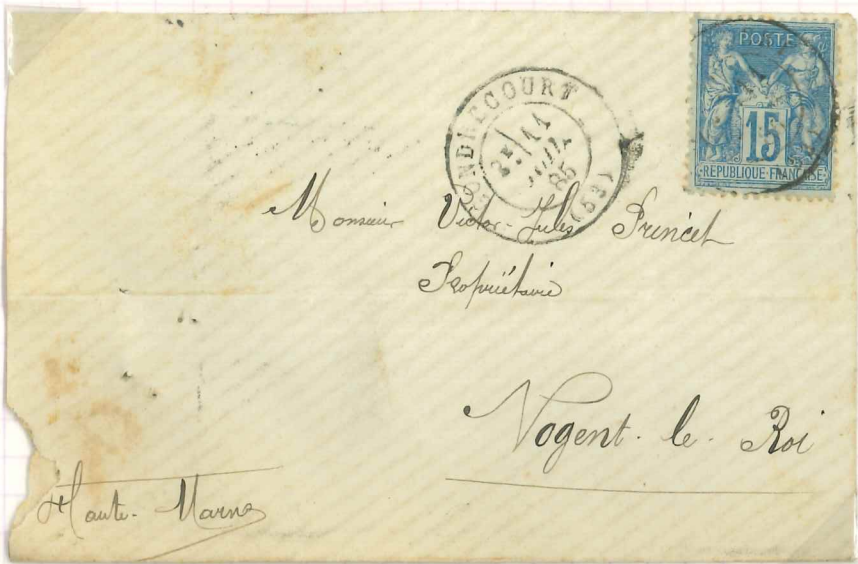 POSTE
15
REPUBLIQUE FRANCAISE
GONDRECOURT
2E 11
JUIL
85
(53)
Monsieur Victor-Jules Princet
Propriétaire
Nogent-le-Roi
Haute-Marne